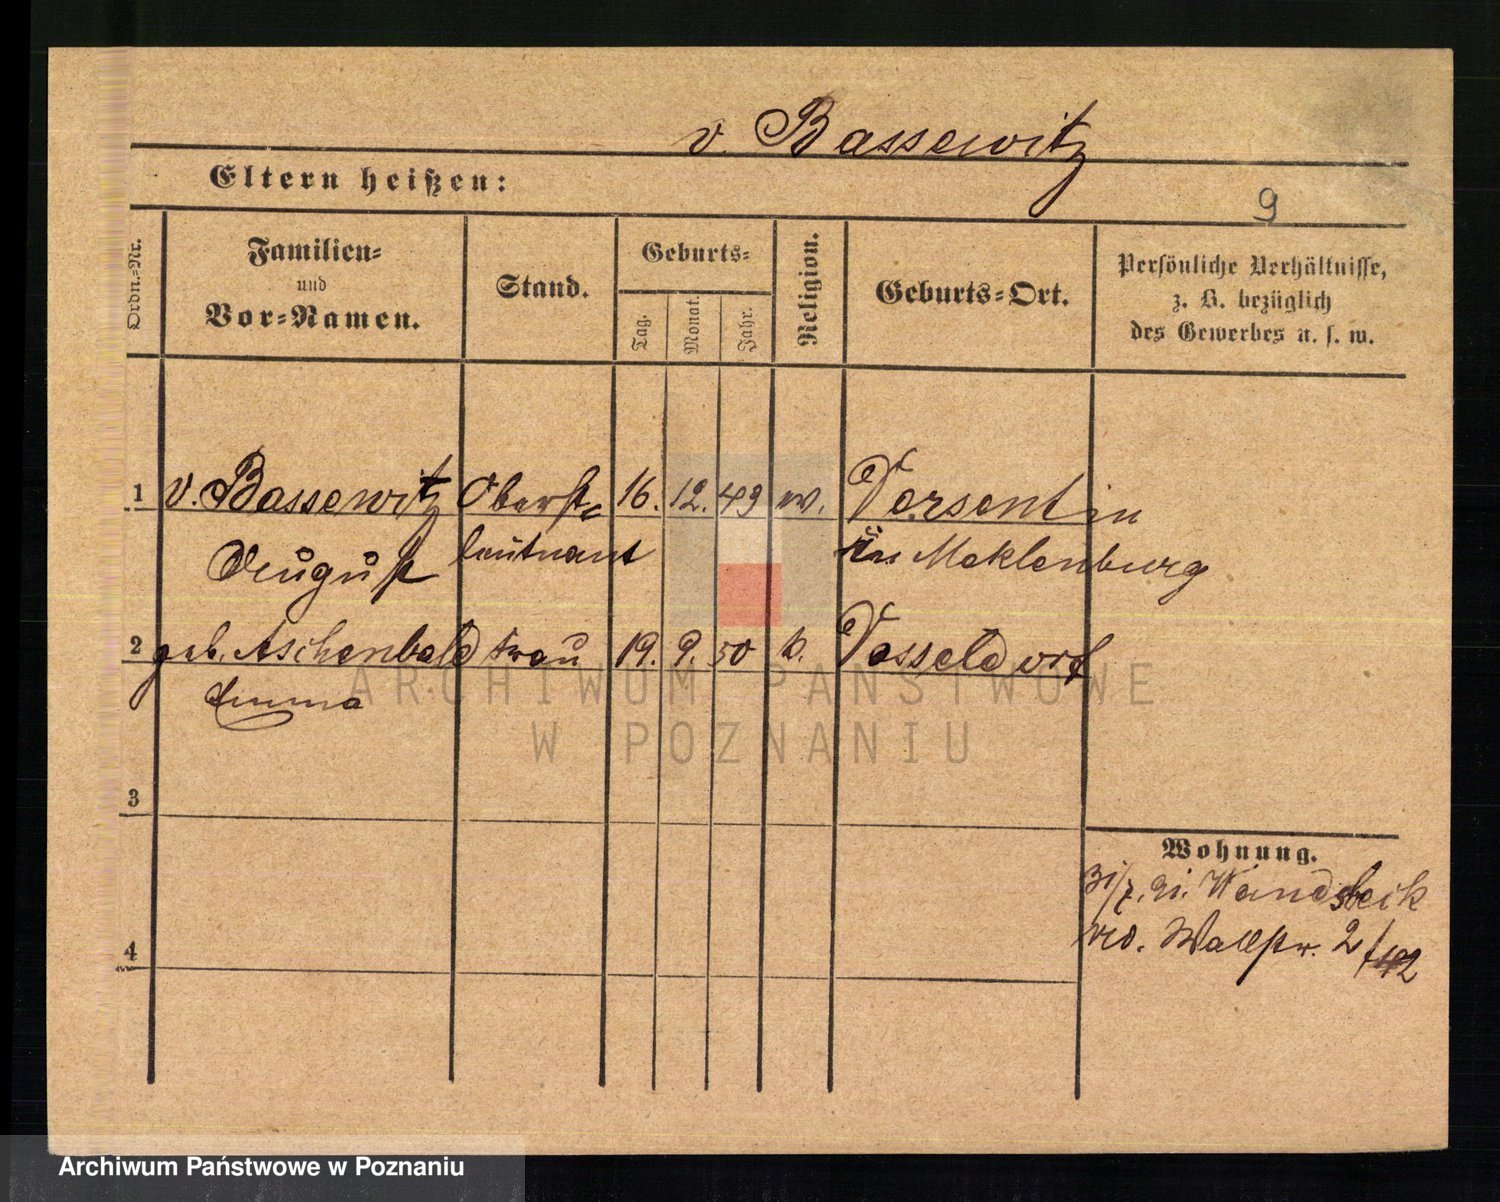 v. Bassewitz
Eltern heißen:
9
Ordn.-Nr.
Familien-
und
Vor-Namen.
Stand.
Geburts-
Tag.
Monat.
Jahr.
Religion.
Geburts-Ort.
Persönliche Verhältnisse,
z. B. bezüglich
des Gewerbes u. s. w.
1 v. Bassewitz Oberst- 16. 12. 49 ev. Versentin
August leutnant in Meklenburg
2 geb. Aschenbald Frau 19. 9. 50 k. Dasseldorf
Emma
ARCHIWUM PAŃSTWOWE
W POZNANIU
3
Wohnung.
31/7. 91. Wandsbeck
Wallstr. 2/
4
Archiwum Państwowe w Poznaniu